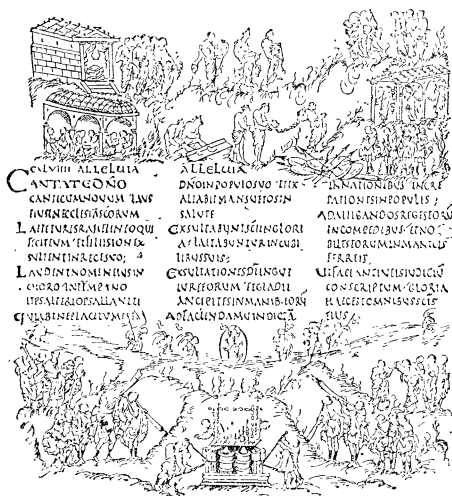 ALLELUIA
CANTATE DNO
CANTICUM NOVUM LAUS
EIUS IN ECCLESIA SCORUM
LAETETUR ISRAHEL IN EO QUI
FECIT EUM ET FILII SION EX
SULTENT IN REGE SUO;
LAUDENT NOMEN EIUS IN
CHORO IN TYMPANO
ET PSALTERIO PSALLANT EI
QUIA BENEPLACITUM EST
ALLELUIA
DNO IN POPULO SUO ET EX
ALTABIT MANSUETOS IN
SALUTE
EXSULTABUNT SCI IN GLORI
A LAETABUNTUR IN CUBI
LIBUS SUIS;
EXSULTATIONES DI IN GUT
TURE EORUM ET GLADII
ANCIPITES IN MANIB; EORU
AD FACIENDAM UINDICTA
IN NATIONIBUS INCRE
PATIONES IN POPULIS;
AD ALLIGANDOS REGES EORU
IN COMPEDIBUS ET NO
BILES EORUM IN MANICIS
FERREIS;
UT FACIANT IN EIS IUDICIU
CONSCRIPTUM GLORIA
HAEC EST OMNIBUS SCIS
EIUS;